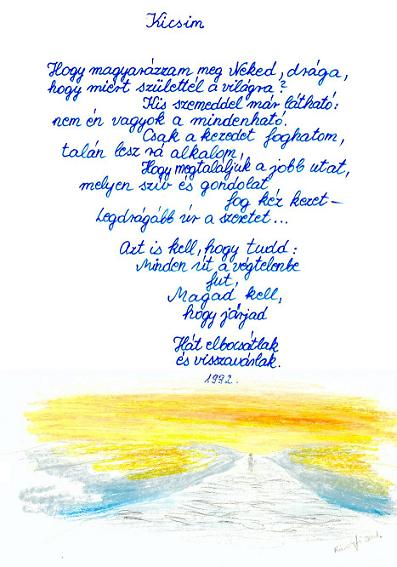 Kicsim
Hogy magyarázzam meg Neked, drága,
hogy miért születtél a világra?
Kis szemeddel már látható:
nem én vagyok a mindenható.
Csak a kezedet foghatom,
talán lesz rá alkalom,
Hogy megtaláljuk a jobb utat,
melyen szív és gondolat
fog kéz kezet –
Legdrágább úr a szeretet...
Azt is kell, hogy tudd:
Minden út a végtelenbe
fut,
Magad kell,
hogy járjad
Hát elbocsátlak
és visszavárlak.
1992.